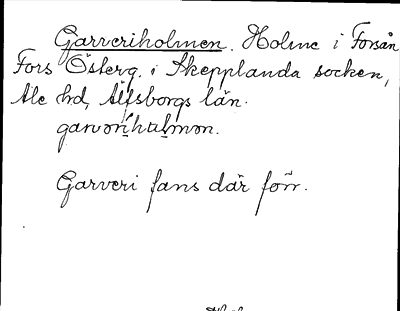 Garveriholmen. Holme i Forsån
Fors Österg. i Skepplanda socken,
Ale hd, Älfsborgs län.
garvəri̱hɑḻmən.
Garveri fans där förr.